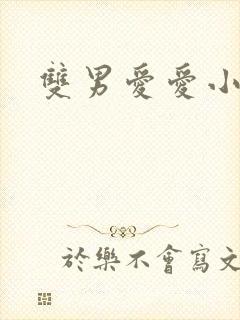 雙男愛愛小
於樂不會寫文